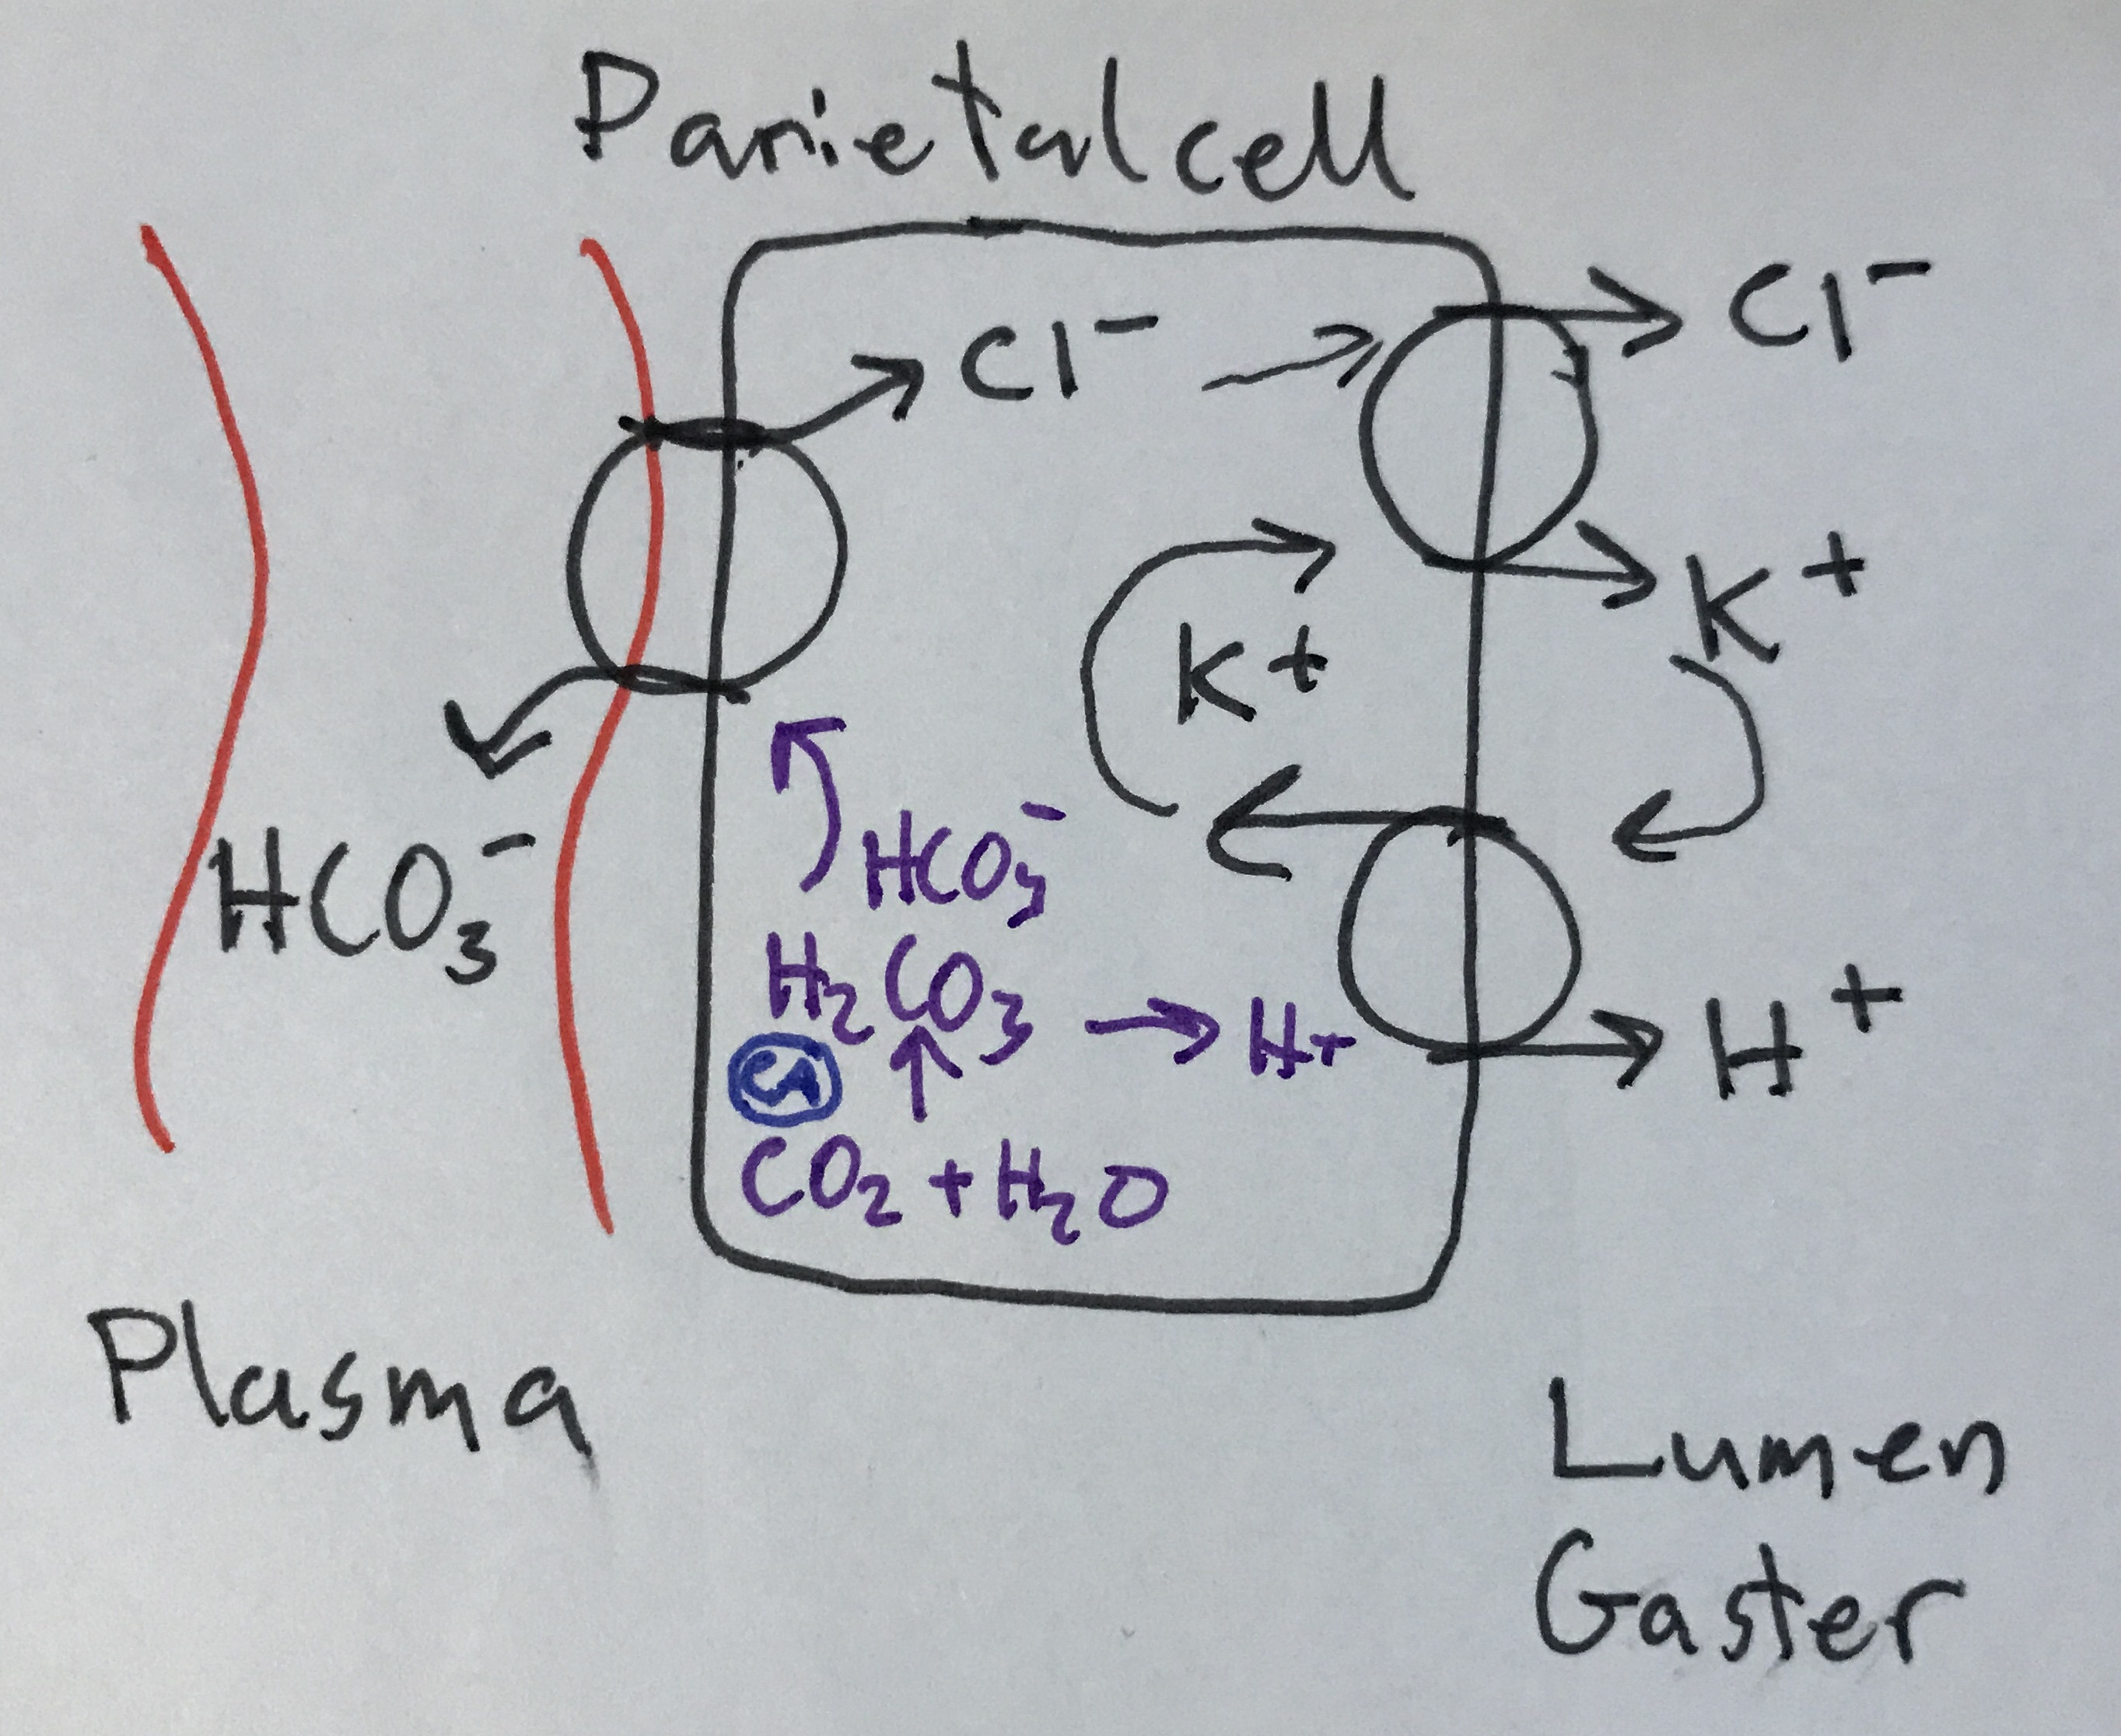 Parietal cell
Cl⁻
Cl⁻
K⁺
K⁺
HCO₃⁻
HCO₃⁻
H₂CO₃ → H+
CA
CO₂ + H₂O
H⁺
Plasma
Lumen
Gaster